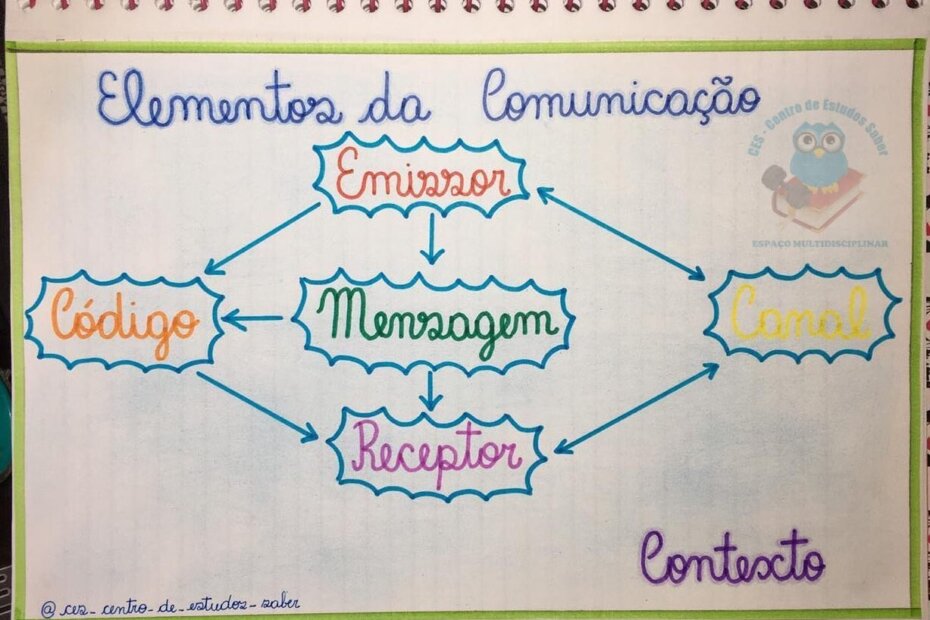 Elementos da Comunicação
CES - Centro de Estudos Saber
ESPAÇO MULTIDISCIPLINAR
Emissor
Código
Mensagem
Canal
Receptor
Contexto
@ces_centro_de_estudos_saber